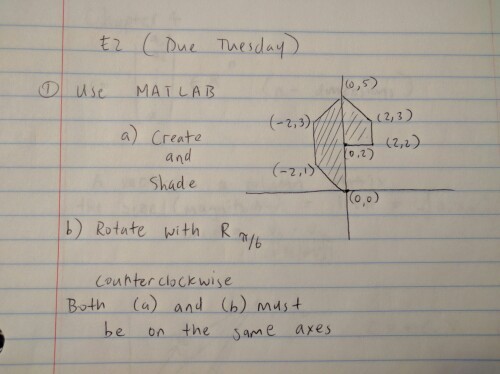 E2 (Due Tuesday)
① Use MATLAB
a) Create
and
Shade
(0,5)
(-2,3)
(2,3)
(0,2)
(2,2)
(-2,1)
(0,0)
b) Rotate with R π/6
counterclockwise
Both (a) and (b) must
be on the same axes